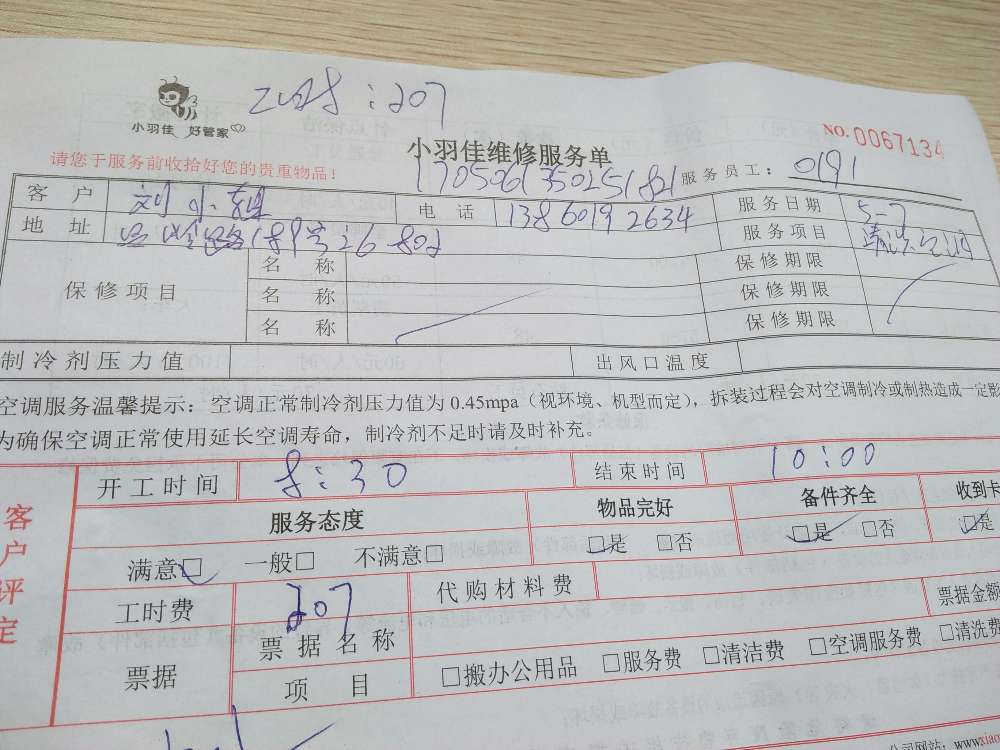 :207
小羽佳 好管家
NO. 0067134
小羽佳维修服务单
请您于服务前收拾好您的贵重物品！
服务员工： 0191
客 户 刘小姐 电 话 13860192634 服务日期 5-7
地 址 服务项目 清洗空调
保修项目 名 称 保修期限
名 称 保修期限
名 称 保修期限
制冷剂压力值 出风口温度
空调服务温馨提示：空调正常制冷剂压力值为 0.45mpa（视环境、机型而定），拆装过程会对空调制冷或制热造成一定影
为确保空调正常使用延长空调寿命，制冷剂不足时请及时补充。
客户评定
开工时间 8:30 结束时间 10:00
服务态度 物品完好 备件齐全 收到卡
满意□ 一般□ 不满意□ □是 □否 □是 □否 □是
工时费 207 代购材料费
票据 票据名称 票据金额
项 目 □搬办公用品 □服务费 □清洁费 □空调服务费 □清洗费
公司网站：www.xiao